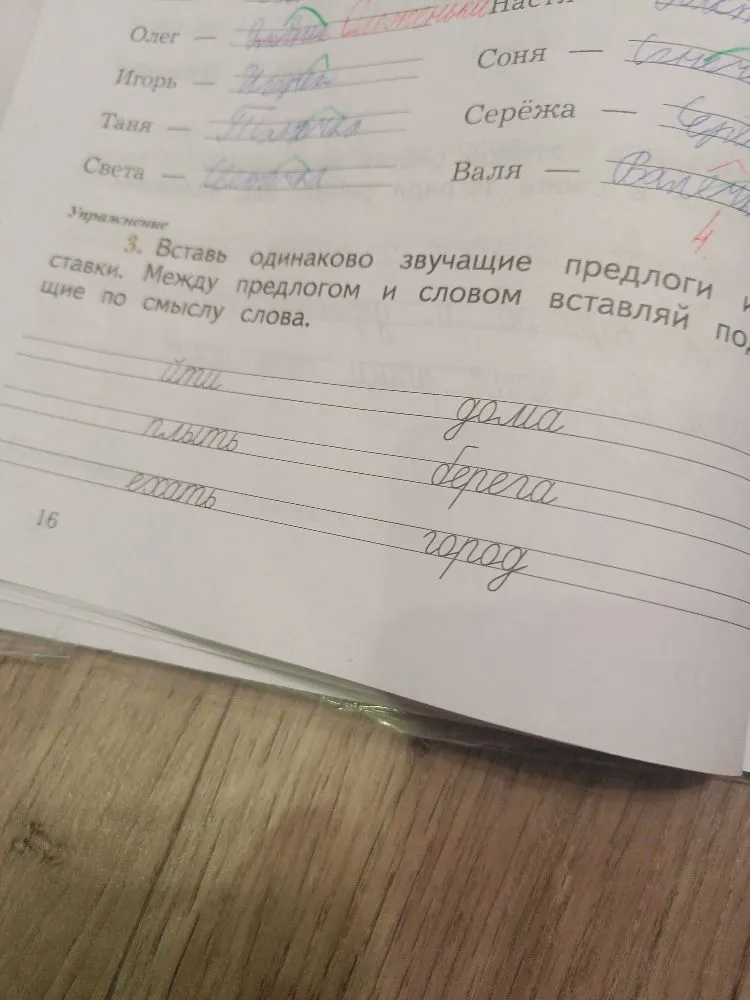 Олег — Сложеньки Настя
Игорь — Соня —
Таня — Танечка Серёжа —
Света — Светочка Валя — Валечк
4.
Упражнение
3. Вставь одинаково звучащие предлоги и
ставки. Между предлогом и словом вставляй под
щие по смыслу слова.
йти дома
плыть берега
ехать город
16